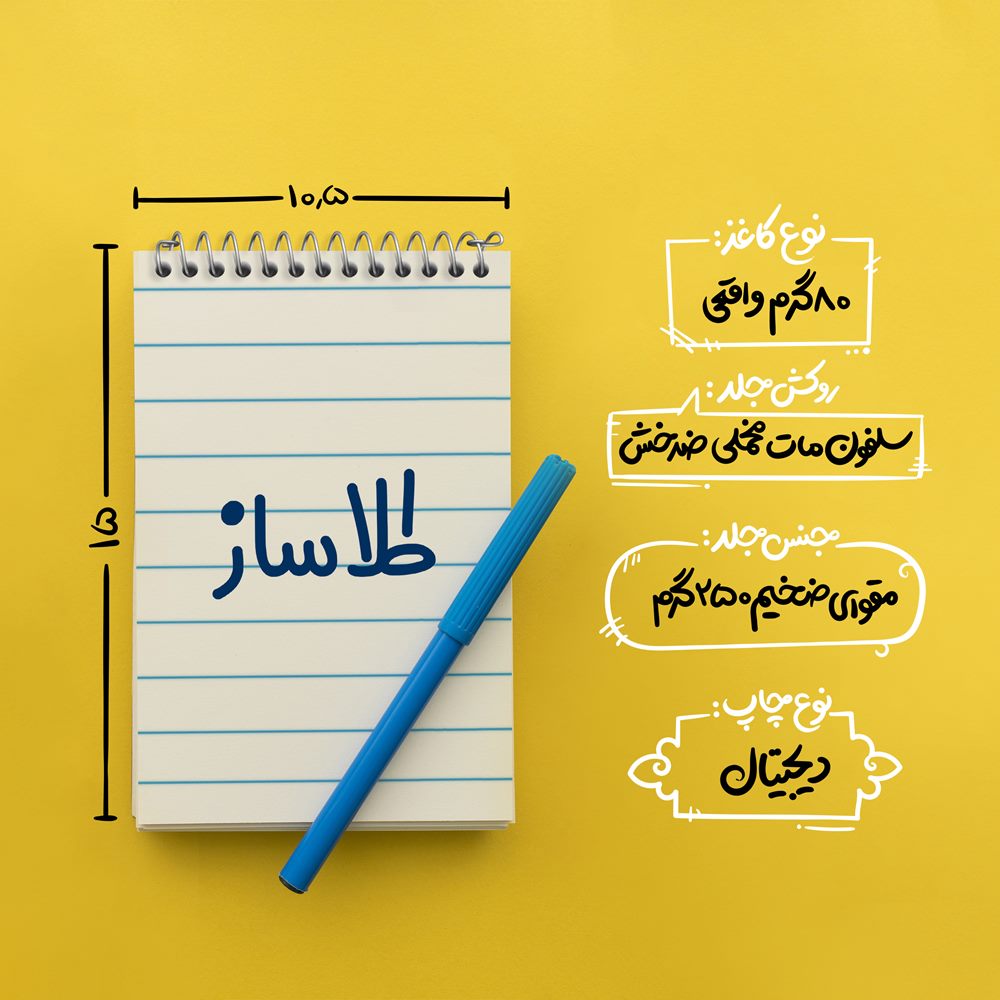 ۱۰٫۵
۱۵
طلاساز
نوع کاغذ:
۸۰گرم واقعی
روکش جلد:
سلفون مات مخملی ضدخش
جنس جلد:
مقوای ضخیم ۲۵۰گرم
نوع چاپ:
دیجیتال